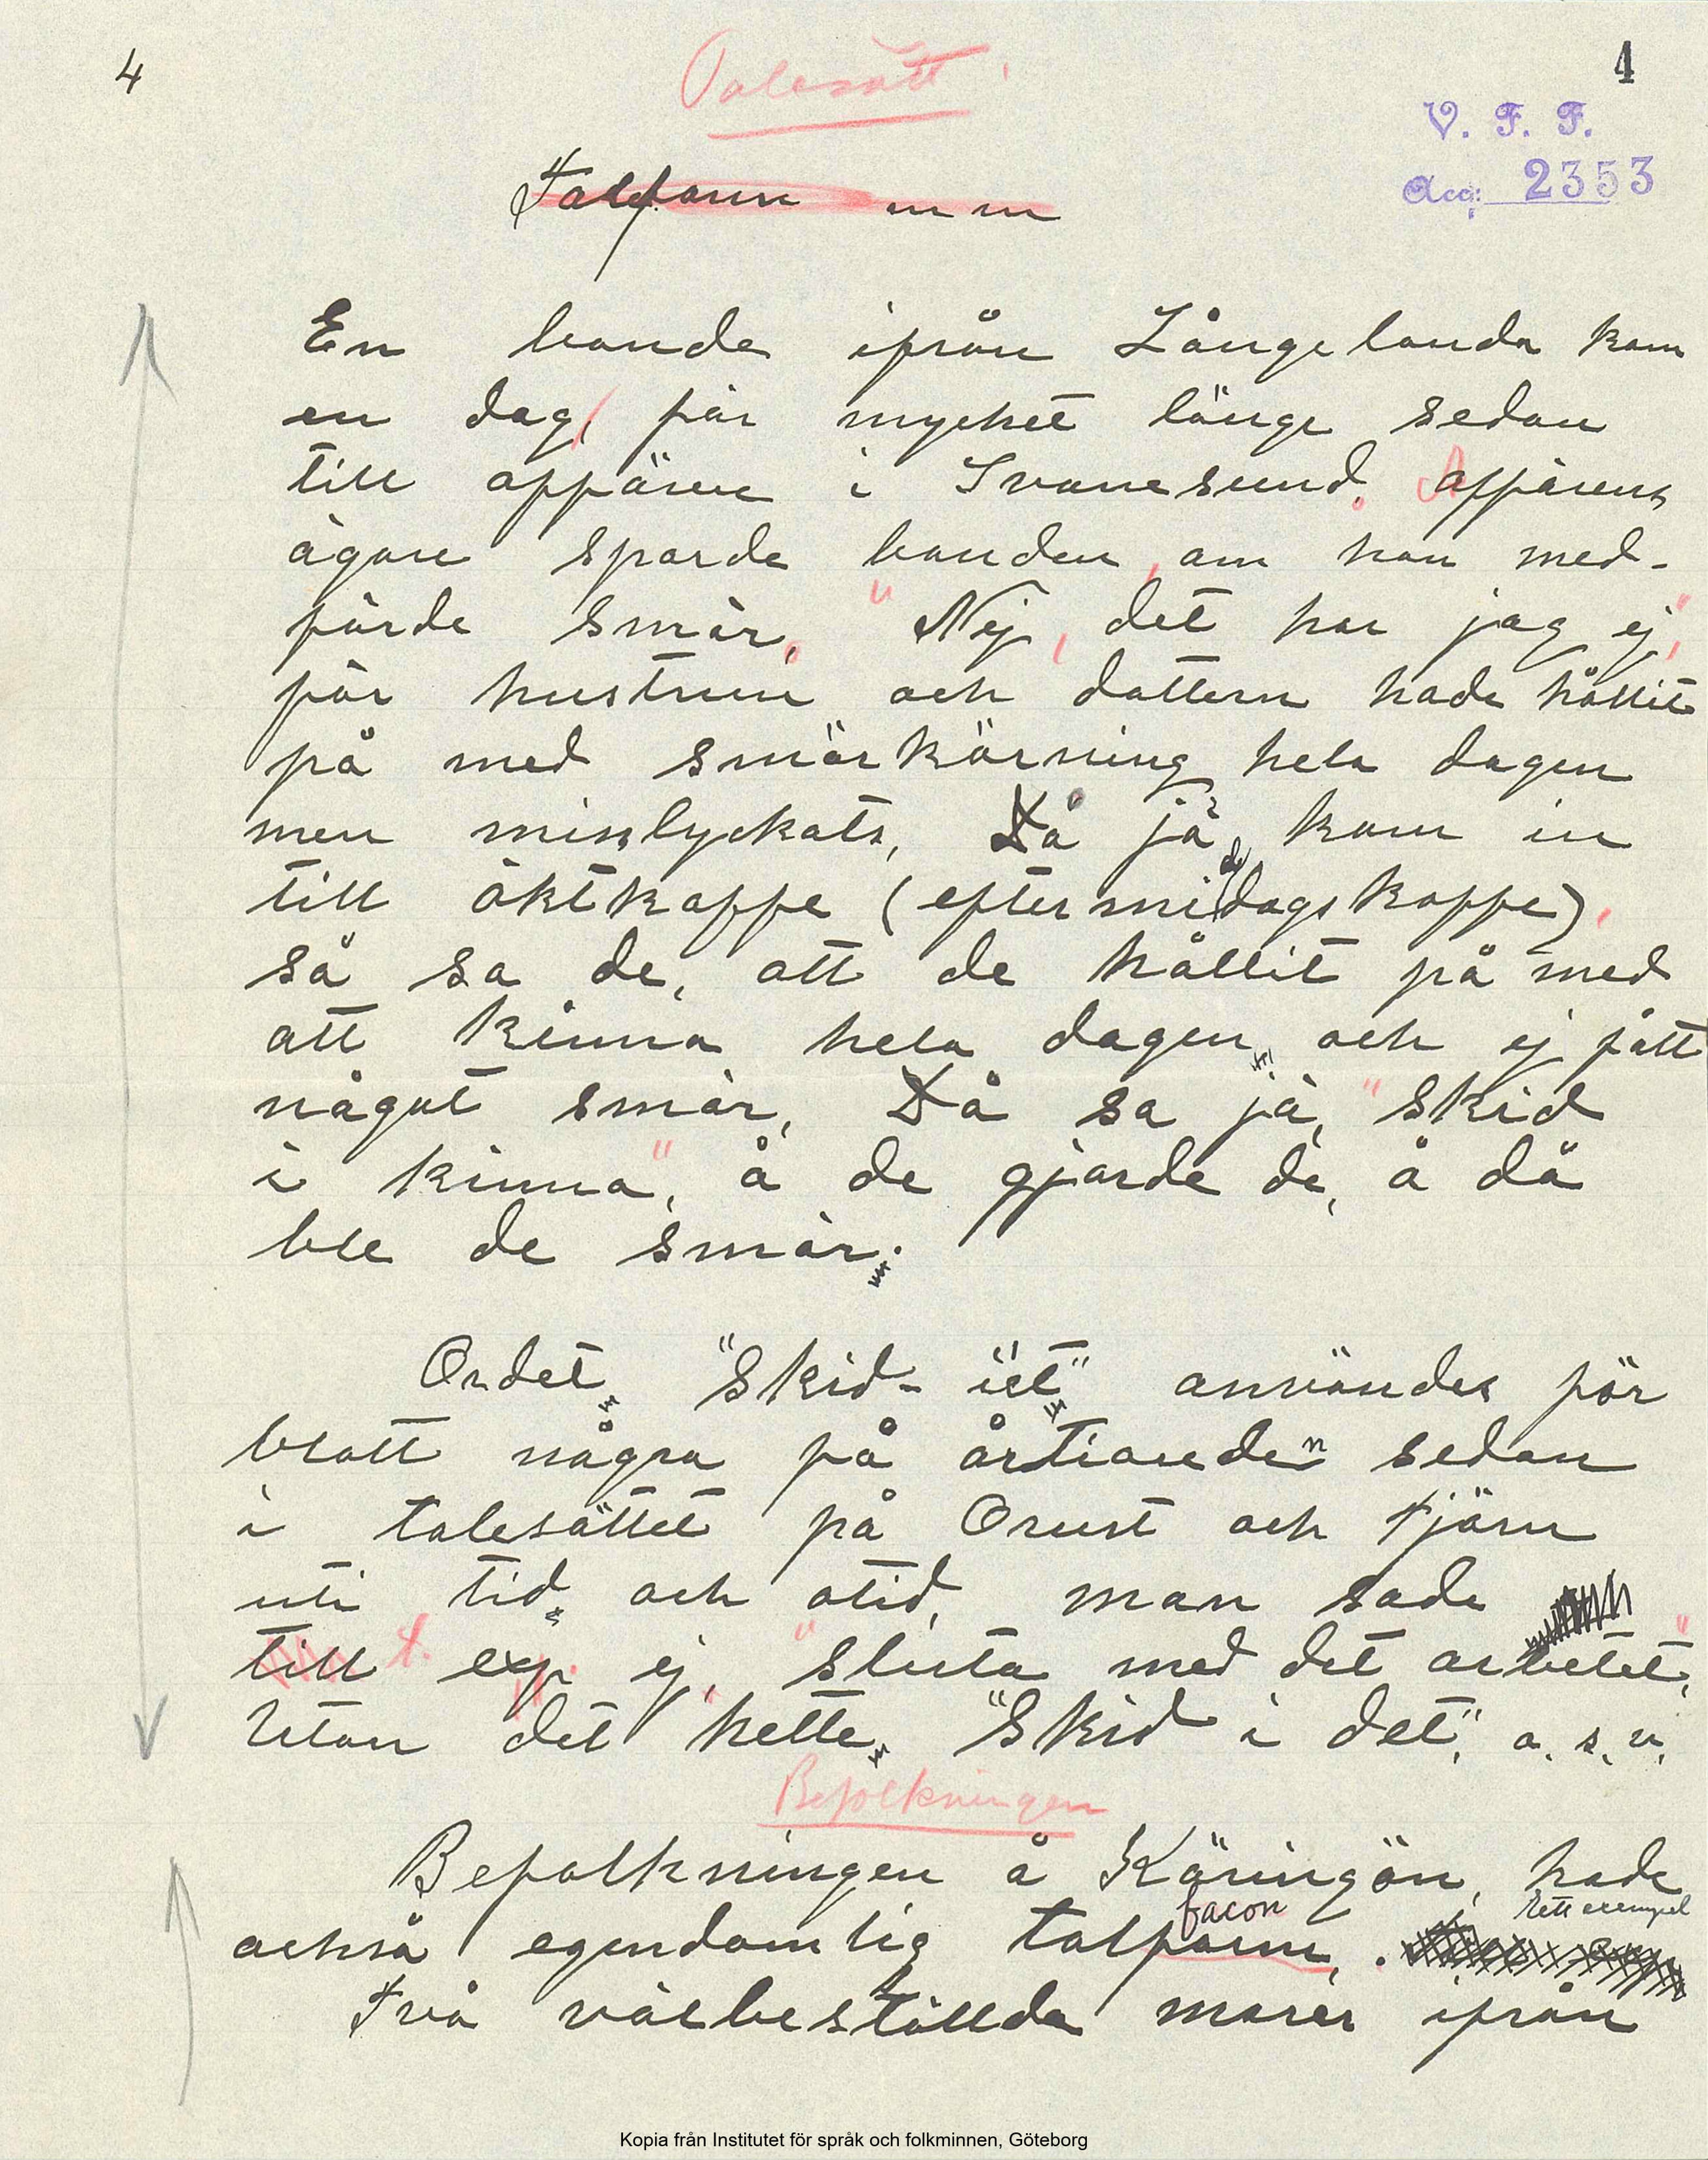 4
4
Talesätt
V. F. F.
Acc: 2353
Talform m m
En bonde ifrån Långelanda kom
en dag, för mycket länge sedan
till affären i Svanesund. Affärens
ägare sporde bonden, om han med-
förde smör. "Nej, det har jag ej,"
för hustrun och dottern hade hållit
på med smörkärning hela dagen
men misslyckats, Då jà kom in
till öktkaffe (eftermiddagskaffe),
så sa de, att de hållit på med
att kinna hela dagen och ej fått
något smör, Då sa jà, "skid
i kinna", å de gjorde de, å då
ble de smör.
Ordet "Skid- i et" användes för
blott några på årtionden sedan
i talesättet på Orust och Tjörn
uti tid och otid, man sade
till t. exp. ej, "sluta med det arbetet,"
Utan det hette "Skid i det", o. s. v.
Befolkningen
Befolkningen å Käringön, hade
facon
Ett exempel
också egendomlig talform,.
Två välbeställda morer ifrån
Kopia från Institutet för språk och folkminnen, Göteborg